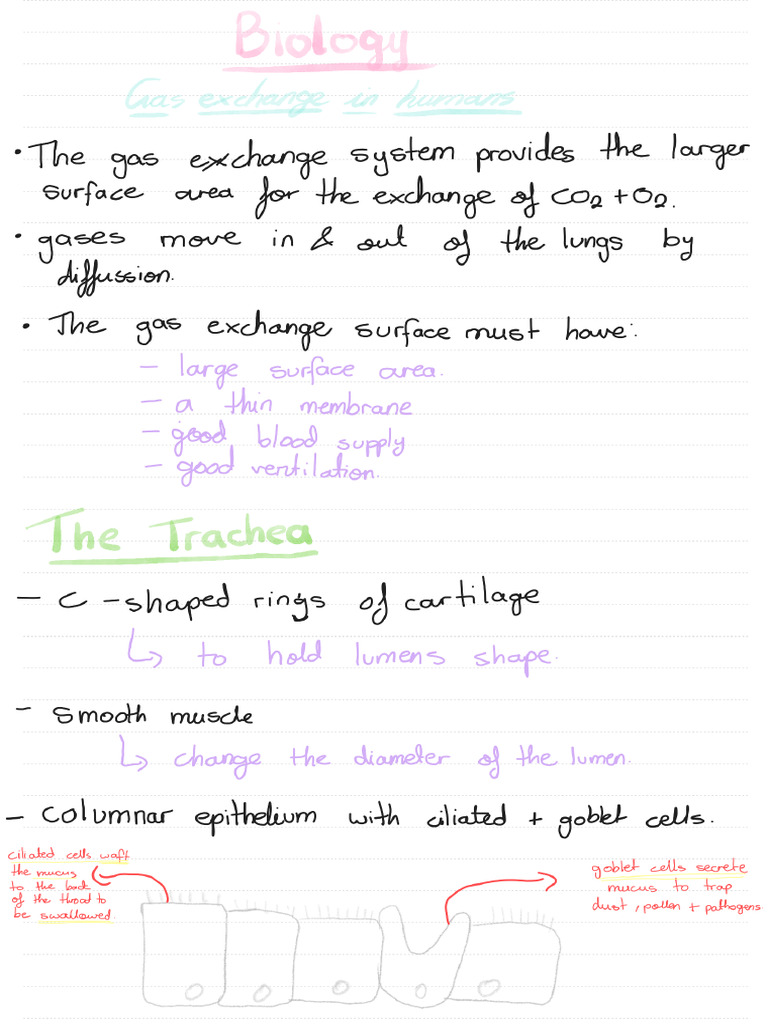 Biology
Gas exchange in humans
• The gas exchange system provides the larger
surface area for the exchange of CO2 + O2.
• gases move in & out of the lungs by
diffussion.
• The gas exchange surface must have:
- large surface area.
- a thin membrane
- good blood supply
- good ventilation.
The Trachea
- C-shaped rings of cartilage
↳ to hold lumens shape.
- smooth muscle
↳ change the diameter of the lumen.
- Columnar epithelium with ciliated + goblet cells.
ciliated cells waft
the mucus
to the back
of the throat to
be swallowed.
goblet cells secrete
mucus to trap
dust, pollen + pathogens